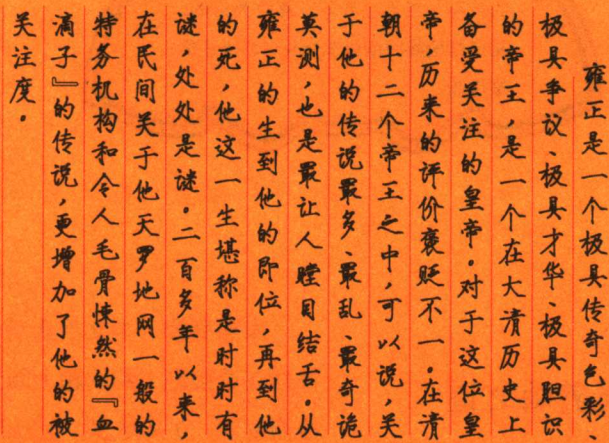 雍正是一个极具传奇色彩、
极具争议、极具才华、极具胆识
的帝王，是一个在大清历史上
备受关注的皇帝。对于这位皇
帝，历来的评价褒贬不一。在清
朝十二个帝王之中，可以说，关
于他的传说最多、最乱、最奇诡
莫测，也是最让人瞠目结舌。从
雍正的生到他的即位，再到他
的死，他这一生堪称是时时有
谜，处处是谜。二百多年以来，
在民间关于他天罗地网一般的
特务机构和令人毛骨悚然的『血
滴子』的传说，更增加了他的被
关注度。